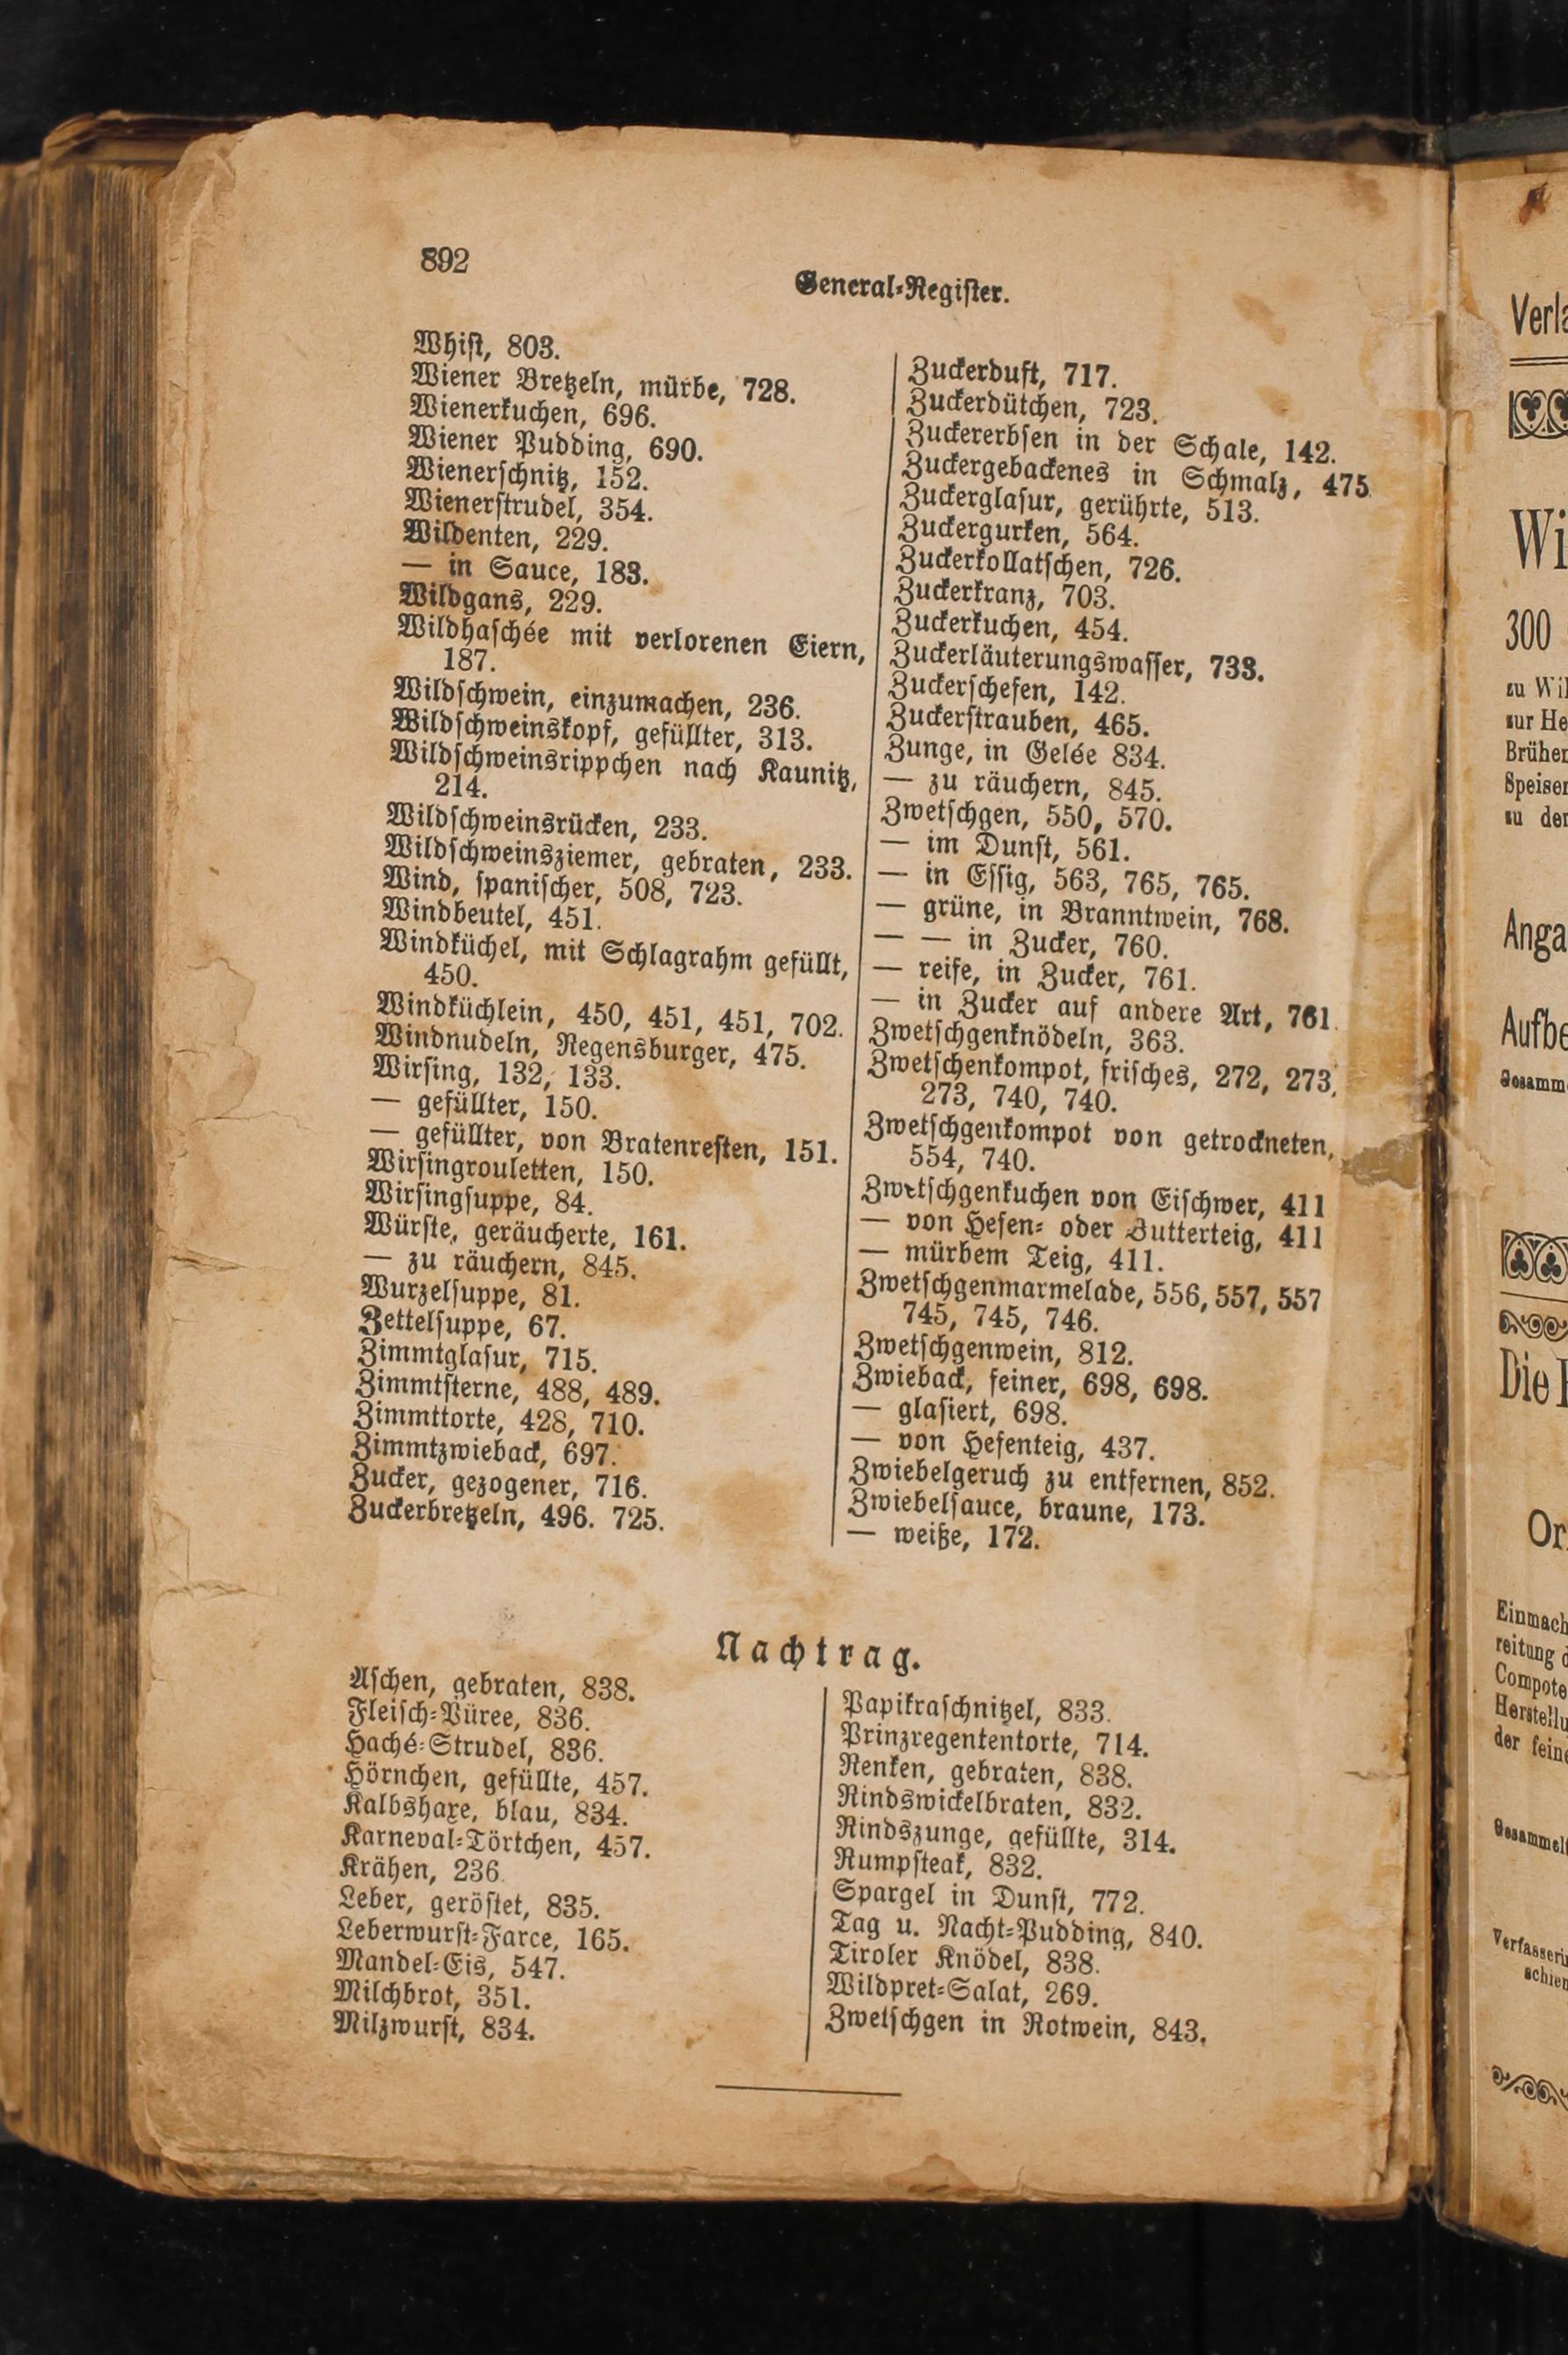 892
General-Register.
Whist, 803.
Wiener Bretzeln, mürbe, 728.
Wienerkuchen, 696.
Wiener Pudding, 690.
Wienerschnitz, 152.
Wienerstrudel, 354.
Wildenten, 229.
— in Sauce, 183.
Wildgans, 229.
Wildhaschée mit verlorenen Eiern,
187.
Wildschwein, einzumachen, 236.
Wildschweinskopf, gefüllter, 313.
Wildschweinsrippchen nach Kaunitz,
214.
Wildschweinsrücken, 233.
Wildschweinsziemer, gebraten, 233.
Wind, spanischer, 508, 723.
Windbeutel, 451.
Windküchel, mit Schlagrahm gefüllt,
450.
Windküchlein, 450, 451, 451, 702.
Windnudeln, Regensburger, 475.
Wirsing, 132, 133.
— gefüllter, 150.
— gefüllter, von Bratenresten, 151.
Wirsingrouletten, 150.
Wirsingsuppe, 84.
Würste, geräucherte, 161.
— zu räuchern, 845.
Wurzelsuppe, 81.
Zettelsuppe, 67.
Zimmtglasur, 715.
Zimmtsterne, 488, 489.
Zimmttorte, 428, 710.
Zimmtzwieback, 697.
Zucker, gezogener, 716.
Zuckerbretzeln, 496. 725.
Zuckerduft, 717.
Zuckerdütchen, 723.
Zuckererbsen in der Schale, 142.
Zuckergebackenes in Schmalz, 475.
Zuckerglasur, gerührte, 513.
Zuckergurken, 564.
Zuckerkollatschen, 726.
Zuckerkranz, 703.
Zuckerkuchen, 454.
Zuckerläuterungswasser, 733.
Zuckerschefen, 142.
Zuckerstrauben, 465.
Zunge, in Gelée 834.
— zu räuchern, 845.
Zwetschgen, 550, 570.
— im Dunst, 561.
— in Essig, 563, 765, 765.
— grüne, in Branntwein, 768.
— — in Zucker, 760.
— reife, in Zucker, 761.
— in Zucker auf andere Art, 761.
Zwetschgenknödeln, 363.
Zwetschenkompot, frisches, 272, 273,
273, 740, 740.
Zwetschgenkompot von getrockneten,
554, 740.
Zwetschgenkuchen von Eischwer, 411
— von Hefen- oder Butterteig, 411
— mürbem Teig, 411.
Zwetschgenmarmelade, 556, 557, 557
745, 745, 746.
Zwetschgenwein, 812.
Zwieback, feiner, 698, 698.
— glasiert, 698.
— von Hefenteig, 437.
Zwiebelgeruch zu entfernen, 852.
Zwiebelsauce, braune, 173.
— weiße, 172.
Nachtrag.
Aschen, gebraten, 838.
Fleisch-Püree, 836.
Haché-Strudel, 836.
Hörnchen, gefüllte, 457.
Kalbshaxe, blau, 834.
Karneval-Törtchen, 457.
Krähen, 236.
Leber, geröstet, 835.
Leberwurst-Farce, 165.
Mandel-Eis, 547.
Milchbrot, 351.
Milzwurst, 834.
Papikraschnitzel, 833.
Prinzregententorte, 714.
Renken, gebraten, 838.
Rindswickelbraten, 832.
Rindszunge, gefüllte, 314.
Rumpsteak, 832.
Spargel in Dunst, 772.
Tag u. Nacht-Pudding, 840.
Tiroler Knödel, 838.
Wildpret-Salat, 269.
Zwetschgen in Rotwein, 843.
300
zu
zur
Die
der